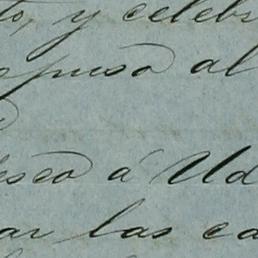 to, y celebr
epuso al
eseo á Ud
ar las ca